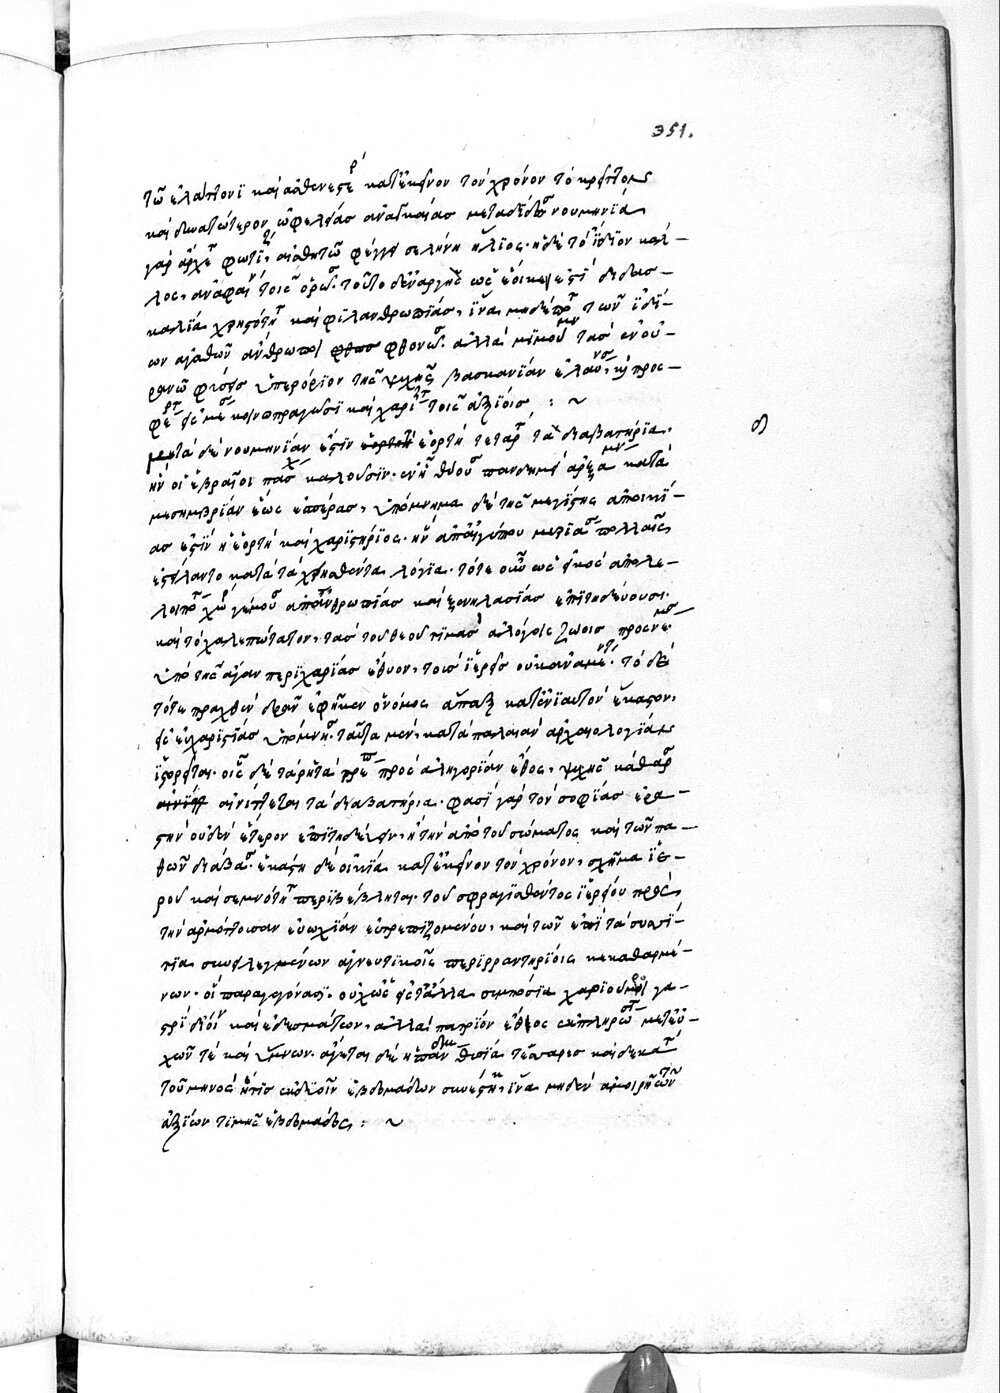 351.
τῶ ἐλάττονι καὶ ἀσθενεστέρ κατ' ἐκεῖνον τὸν χρόνον τὸ κρεῖττον
καὶ δυνατώτερον ὠφελείας ἀναγκαίας μεταδίδωσι νουμηνία
γὰρ ἄρχεται φωτίζειν αἰσθητῶ φέγγει σελήνην ἥλιος· ἡ δὲ τὸ ἴδιον κάλ-
λος, ἀναφαίνει τοῖς ὁρῶσι· τοῦτο δ' ἐναργὴς ὡς ἔοικεν ἐστὶ διδασ-
καλία χρηστότητος καὶ φιλανθρωπίας, ἵνα μηδέποτε τῶν ἰδί-
ων ἀγαθῶν ἄνθρωποι φθονῶσιν· ἀλλὰ μιμούμενοι τὰς ἐν οὐ-
ρανῶ φύσεις ὑπερόριον τῆς ψυχῆς βασκανίαν ἐλαύνοντες, καὶ προς-
φέρωνται εἰς μέσον κοινοπραγῶσι καὶ χαρίζωνται τοῖς ἀξίοις :~
μετὰ δὲ νουμηνίαν ἐστὶν ἑορτὴ τετάρτη τὰ διαβατήρια·
δ
ἣν οἱ ἑβραῖοι πάσχα καλοῦσιν· ἐν ἧ θύουσι πανδημεὶ ἀρξάμενοι κατὰ
μεσημβρίαν ἕως ἑσπέρας, ὑπόμνημα δὲ τῆς μεγίστης ἀποικί-
ας ἐστὶν ἡ ἑορτὴ καὶ χαριστήριος· ἣν ἀπ' αἰγύπτου μυριάσι πολλαῖς
ἐστείλαντο κατὰ τὰ χρησθέντα λόγια· τότε οὖν ὡς εἰκὸς ἀπολε-
λοιπότες χώραν γέμουσαν ἀπανθρωπίας καὶ ξενηλασίας ἐπιτηδεύουσι·
καὶ τὸ χαλεπώτατον, τὰς τοῦ θεοῦ τιμὰς ἀλόγοις ζώοις προσνέμουσαν
ὑπὸ τῆς ἄγαν περιχαρίας ἔθυον, τοὺς ἱερεῖς οὐκ ἀναμένοντες· τὸ δὲ
τότε πραχθὲν δρᾶν ἐφῆκεν ὁ νόμος ἅπαξ κατ' ἐνιαυτὸν ἕκαστον,
εἰς εὐχαριστίας ὑπόμνησιν· ταῦτα μὲν, κατὰ παλαιὰν ἀρχαιολογίαν
ἱστορεῖται· οἷς δὲ τὰ ῥητὰ τρέπειν πρὸς ἀλληγορίαν ἔθος, ψυχῆς κάθαρσιν
αἰνίττεται τὰ διαβατήρια· φασὶ γὰρ τὸν σοφίας ἐρα-
στὴν οὐδὲν ἕτερον ἐπιτηδεύειν, ἢ τὴν ἀπὸ τοῦ σώματος καὶ τῶν πα-
θῶν διάβασιν· ἑκάστη δὲ οἰκία κατ' ἐκεῖνον τὸν χρόνον, σχῆμα ἱε-
ροῦ καὶ σεμνότητα περιβέβληται· τοῦ σφαγιασθέντος ἱερείου πρὸς
τὴν ἁρμόττουσαν εὐωχίαν εὐτρεπιζομένου, καὶ τῶν ἐπὶ τὰ συσσί-
τια συνειλεγμένων ἁγνευτικοῖς περιρραντηρίοις κεκαθαρμέ-
νων· οἳ παραγεγόνασιν· οὐχ ὡς εἰς τἄλλα συμπόσια χαριούμενοι γα-
στρὶ δι' οἴνου καὶ ἐδεσμάτων, ἀλλὰ πάτριον ἔθος ἐκπληρώσοντες μετ' εὐ-
χῶν τὲ καὶ ὕμνων· ἄγεται δὲ ἡ πάνδημος θυσία τέσσαρες καὶ δεκάτη
τοῦ μηνὸς ἥτις ἐκ δυοῖν ἑβδομάδων συνέστηκεν, ἵνα μηδὲν ἀμοιρῆ τῶν
ἀξίων τιμῆς ἑβδομάδος :~